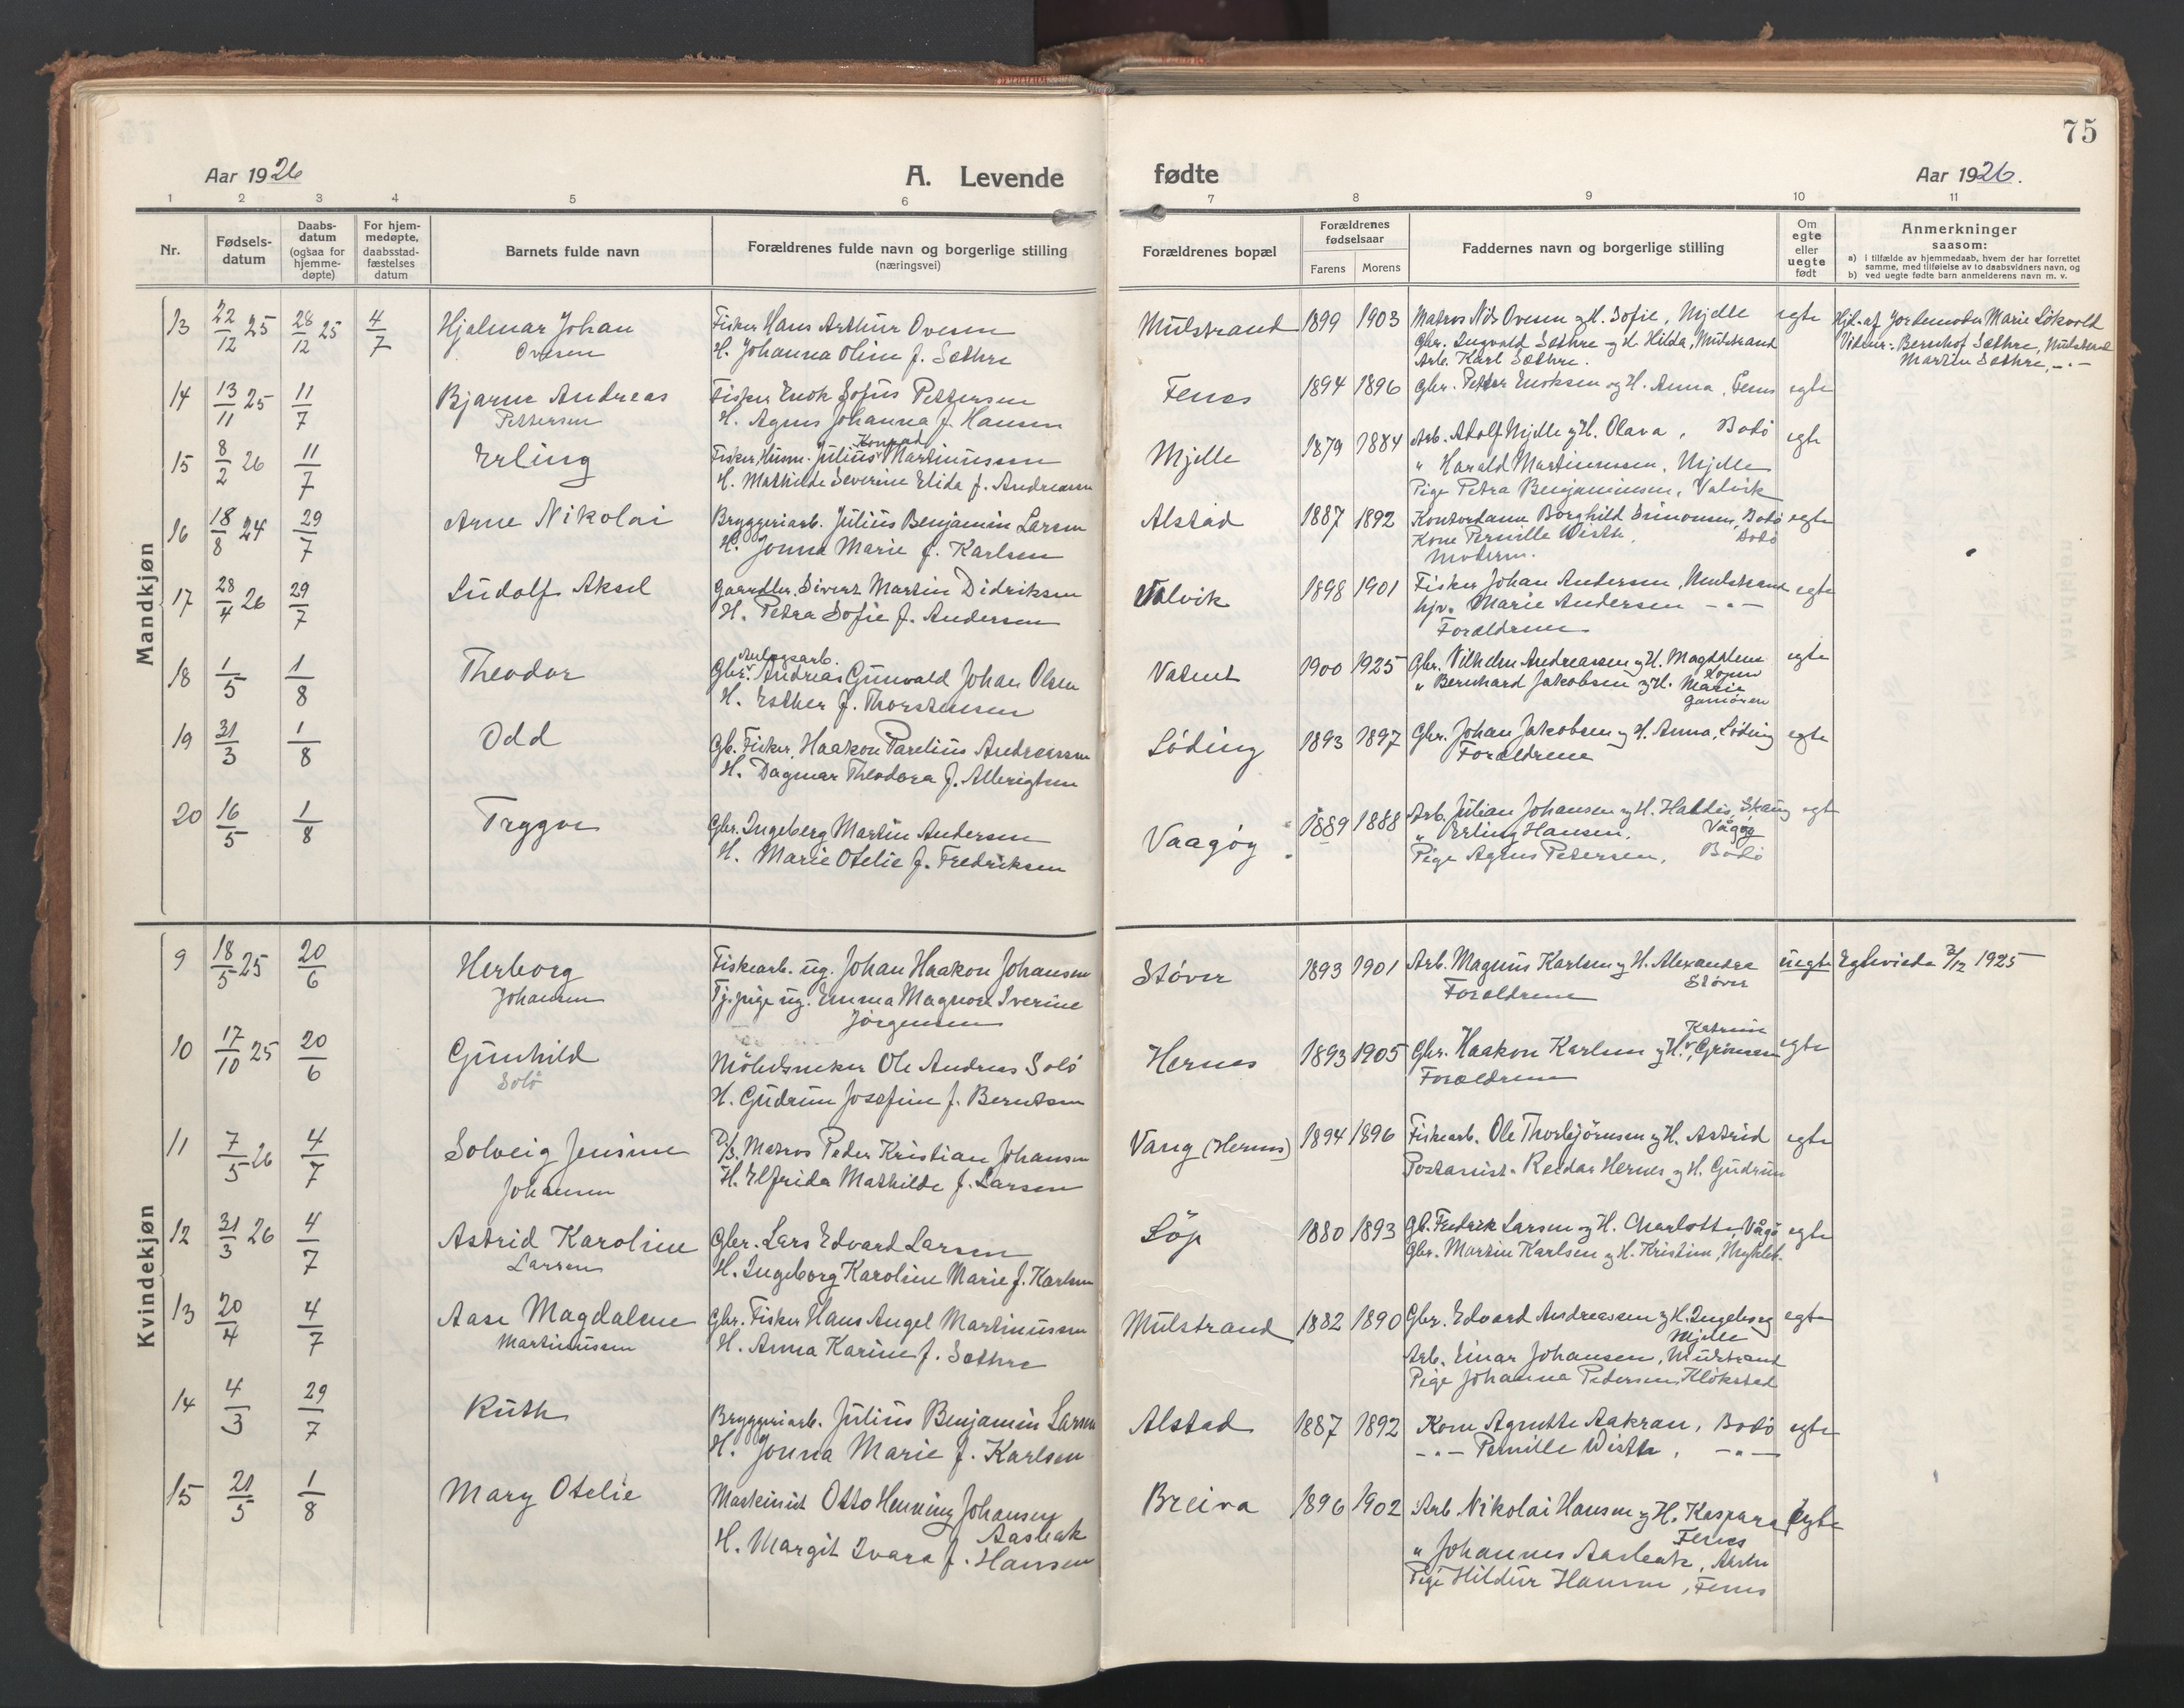 75
Aar 1926
A. Levende
fødte
Aar 1926.
1 2 3 4 5 6 7 8 9 10 11
Nr.
Fødsels-
datum
Daabs-
datum
(ogsaa for
hjemme-
døpte)
For hjem-
medøpte,
daabsstad-
fæstelses
datum
Barnets fulde navn
Forældrenes fulde navn og borgerlige stilling
(næringsvei)
Forældrenes bopæl
Forældrenes
fødselsaar
Farens Morens
Faddernes navn og borgerlige stilling
Om
egte
eller
uegte
født
Anmerkninger
saasom:
a) i tilfælde av hjemmedaab, hvem der har forrettet
samme, med tilføielse av to daabsvidners navn, og
b) ved uegte fødte barn anmelderens navn m. v.
Mandkjøn
13 22/12 25 28/12 25 4/7 Hjalmar Johan Fisker Hans Arthur Ovesen Mulstrand 1899 1903 Matros Nils Ovesen og H. Sofie, Mjelle egte Hjd. af Jordemoder Marie Løkvold
Ovesen H. Johanna Oline f. Sæthre Gbr. Ingvald Sæthre og H. Hilda, Mulstrand Vidner: Bernhof Sæthre, Mulstrand
Arb. Karl Sæthre. Martin Sæthre, -"-
14 13/11 25 11/7 Bjarne Andreas Fisker Enok Sofus Pettersen Fenes 1894 1896 Gbr. Petter Enoksen og H. Anna, Fenes egte
Pettersen H. Agnes Johanna f. Hansen
15 8/2 26 11/7 Erling Fisker, Husm. Julius Konrad Martinussen Mjelle 1879 1884 Arb. Adolf Mjelle og H. Olava, Bodø egte
H. Mathilde Severine Elida f. Andreasen " Harald Martinussen, Mjelle
Pige Petra Benjaminsen, Valvik
16 18/8 24 29/7 Arne Nikolai Bryggeriarb. Julius Benjamin Larsen Alstad 1887 1892 Kontordame Borghild Simonsen, Bodø egte
H. Jonna Marie f. Karlsen Kone Pernille Wisth, Bodø
Moderen.
17 28/4 26 29/7 Ludolf Aksel Gaardbr. Sivert Martin Didriksen Valvik 1898 1901 Fisker Johan Andersen, Mulstrand egte
H. Petra Sofie f. Andersen hjv. Marie Andersen -"-
Forældrene
18 1/5 1/8 Theodor Gbr. Anlegsarb. Andreas Gunvald Johan Olsen Vatnet 1900 1925 Gbr. Vilhelm Andreassen og H. Magdalene egte
H. Esther f. Thorstensen " Bernhard Jakobsen og H. Marie
19 31/3 1/8 Odd Gb. Fisker, Haakon Parelius Andreassen Løding 1893 1897 Gbr. Johan Jakobsen og H. Anna, Løding egte
H. Dagmar Theodora f. Albrigtsen Forældrene
20 16/5 1/8 Trygve Gbr. Ingeberg Martin Andersen Vaagøy 1889 1888 Arb. Julian Johansen og H. Haldis, Skaug egte
H. Marie Otelie f. Fredriksen " Erling Hansen, Vågøy
Pige Agnes Petersen, Bodø
Kvindekjøn
9 18/5 25 20/6 Herborg Fiskearb. ug. Johan Haakon Johansen Støver 1893 1901 Arb. Magnus Karlsen og H. Alexandra uegte Egteviede 3/12 1925
Johansen Tj.pige ug. Emma Magnore Iverine Støver
Jørgensen Forældrene
10 17/10 25 20/6 Gunhild Möbelsnekker Ole Andreas Solø Hernes 1893 1905 Gbr. Haakon Karlsen og H. Katrine, Grønaasen egte
Solø H. Gudrun Josefine f. Berntsen Forældrene
11 7/5 26 4/7 Solveig Jensine D/S. Matros Peder Kristian Johansen Vang (Hernes) 1894 1896 Fiskearb. Ole Thorbjørnsen og H. Astrid egte
Johansen H. Elfrida Mathilde f. Larsen Postassist. Reidar Hernes og H. Gudrun
12 31/3 26 4/7 Astrid Karoline Gbr. Lars Edvard Larsen Løp 1880 1893 Gb. Fredrik Larsen og H. Charlotte, Vågø egte
Larsen H. Ingeborg Karoline Marie f. Karlsen Gbr. Martin Karlsen og H. Kristine, Mykleb.
13 20/4 4/7 Aase Magdalene Gbr. Fisker Hans Angel Martinussen Mulstrand 1882 1890 Gbr. Edvard Andreassen og H. Ingeborg egte
Martinussen H. Anna Karine f. Sæthre Mjelle
Arb. Einar Johansen, Mulstrand
Pige Johanna Pedersen, Kløkstad
14 4/3 29/7 Ruth Bryggeriarb. Julius Benjamin Larsen Alstad 1887 1892 Kone Agnethe Aakran, Bodø egte
H. Jonna Marie f. Karlsen -"- Pernille Wisth, -"-
15 21/5 1/8 Mary Otelie Maskinist Otto Henning Johansen Breiva 1896 1902 Arb. Nikolai Hansen og H. Kaspara egte
Aasbak Fenes
H. Margit Ivara f. Hansen " Johannes Aasbak,
Pige Hildur Hansen, Fenes